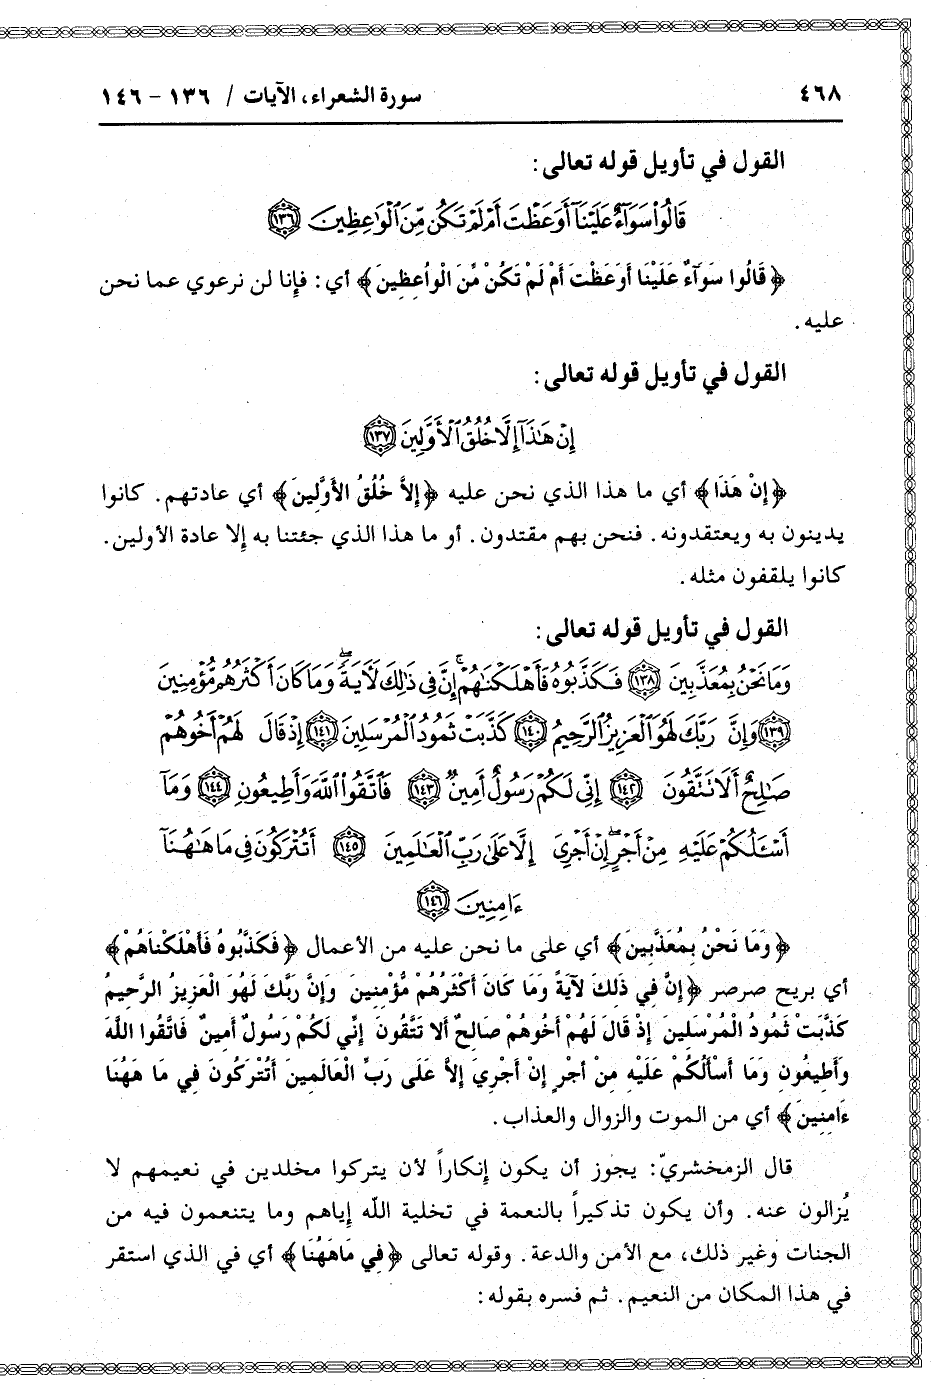 ٤٦٨ سورة الشعراء، الآيات / ١٣٦ - ١٤٦
القول في تأويل قوله تعالى:
قَالُوا۟ سَوَآءٌ عَلَيْنَآ أَوَعَظْتَ أَمْ لَمْ تَكُن مِّنَ ٱلْوَٰعِظِينَ ١٣٦
﴿قَالُوا سَوَآءٌ عَلَيْنَا أَوَعَظْتَ أَمْ لَمْ تَكُنْ مِّنَ الْوَاعِظِينَ﴾ أي: فإنا لن نرعوي عما نحن
عليه.
القول في تأويل قوله تعالى:
إِنْ هَٰذَآ إِلَّا خُلُقُ ٱلْأَوَّلِينَ ١٣٧
﴿إِنْ هَذَا﴾ أي ما هذا الذي نحن عليه ﴿إِلاَّ خُلُقُ الأَوَّلِينَ﴾ أي عادتهم. كانوا
يدينون به ويعتقدونه. فنحن بهم مقتدون. أو ما هذا الذي جئتنا به إلا عادة الأولين.
كانوا يلقفون مثله.
القول في تأويل قوله تعالى:
وَمَا نَحْنُ بِمُعَذَّبِينَ ١٣٨ فَكَذَّبُوهُ فَأَهْلَكْنَٰهُمْ ۚ إِنَّ فِى ذَٰلِكَ لَءَايَةً ۖ وَمَا كَانَ أَكْثَرُهُم مُّؤْمِنِينَ
١٣٩ وَإِنَّ رَبَّكَ لَهُوَ ٱلْعَزِيزُ ٱلرَّحِيمُ ١٤٠ كَذَّبَتْ ثَمُودُ ٱلْمُرْسَلِينَ ١٤١ إِذْ قَالَ لَهُمْ أَخُوهُمْ
صَٰلِحٌ أَلَا تَتَّقُونَ ١٤٢ إِنِّى لَكُمْ رَسُولٌ أَمِينٌ ١٤٣ فَٱتَّقُوا۟ ٱللَّهَ وَأَطِيعُونِ ١٤٤ وَمَآ
أَسْـَٔلُكُمْ عَلَيْهِ مِنْ أَجْرٍ ۖ إِنْ أَجْرِىَ إِلَّا عَلَىٰ رَبِّ ٱلْعَٰلَمِينَ ١٤٥ أَتُتْرَكُونَ فِى مَا هَٰهُنَآ
ءَامِنِينَ ١٤٦
﴿وَمَا نَحْنُ بِمُعَذَّبِينَ﴾ أي على ما نحن عليه من الأعمال ﴿فَكَذَّبُوهُ فَأَهْلَكْنَاهُمْ﴾
أي بريح صرصر ﴿إِنَّ فِي ذَلِكَ لآيَةً وَمَا كَانَ أَكْثَرُهُمْ مُّؤْمِنِينَ وَإِنَّ رَبَّكَ لَهُوَ الْعَزِيزُ الرَّحِيمُ
كَذَّبَتْ ثَمُودُ الْمُرْسَلِينَ إِذْ قَالَ لَهُمْ أَخُوهُمْ صَالِحٌ أَلا تَتَّقُونَ إِنِّي لَكُمْ رَسُولٌ أَمِينٌ فَاتَّقُوا اللَّهَ
وَأَطِيعُونِ وَمَا أَسْأَلُكُمْ عَلَيْهِ مِنْ أَجْرٍ إِنْ أَجْرِيَ إِلاَّ عَلَى رَبِّ الْعَالَمِينَ أَتُتْرَكُونَ فِي مَا هَهُنَا
ءَامِنِينَ﴾ أي من الموت والزوال والعذاب.
قال الزمخشريّ: يجوز أن يكون إنكاراً لأن يتركوا مخلدين في نعيمهم لا
يُزالون عنه. وأن يكون تذكيراً بالنعمة في تخلية الله إياهم وما يتنعمون فيه من
الجنات وغير ذلك، مع الأمن والدعة. وقوله تعالى ﴿فِي مَاهَهُنَا﴾ أي في الذي استقر
في هذا المكان من النعيم. ثم فسره بقوله: